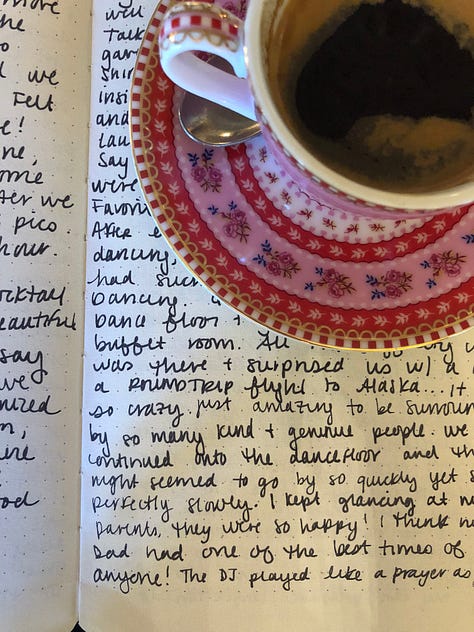 more
the
to
we
Felt
e!
ne,
ome
After we
pico
hour.
ocktail
beautiful
say
we
mized
n,
ine
e
ood
well
Talk
gave
Shir
insi
and
Lau
Say
were
Favori
After e
dancing,
had suc
Dancing.
Dance floor
buffet room. All
was there + surprised us w/ a
a ROUNDTRIP flight to Alaska... it
so crazy. just amazing to be surroun
by so many kind + genuine people. we
continued onto the dancefloor and th
night seemed to go by so quickly yet s
perfectly slowly. I kept glancing at m
parents, they were so happy! I think m
Dad had one of the best times of
anyone! The DJ played like a prayer as